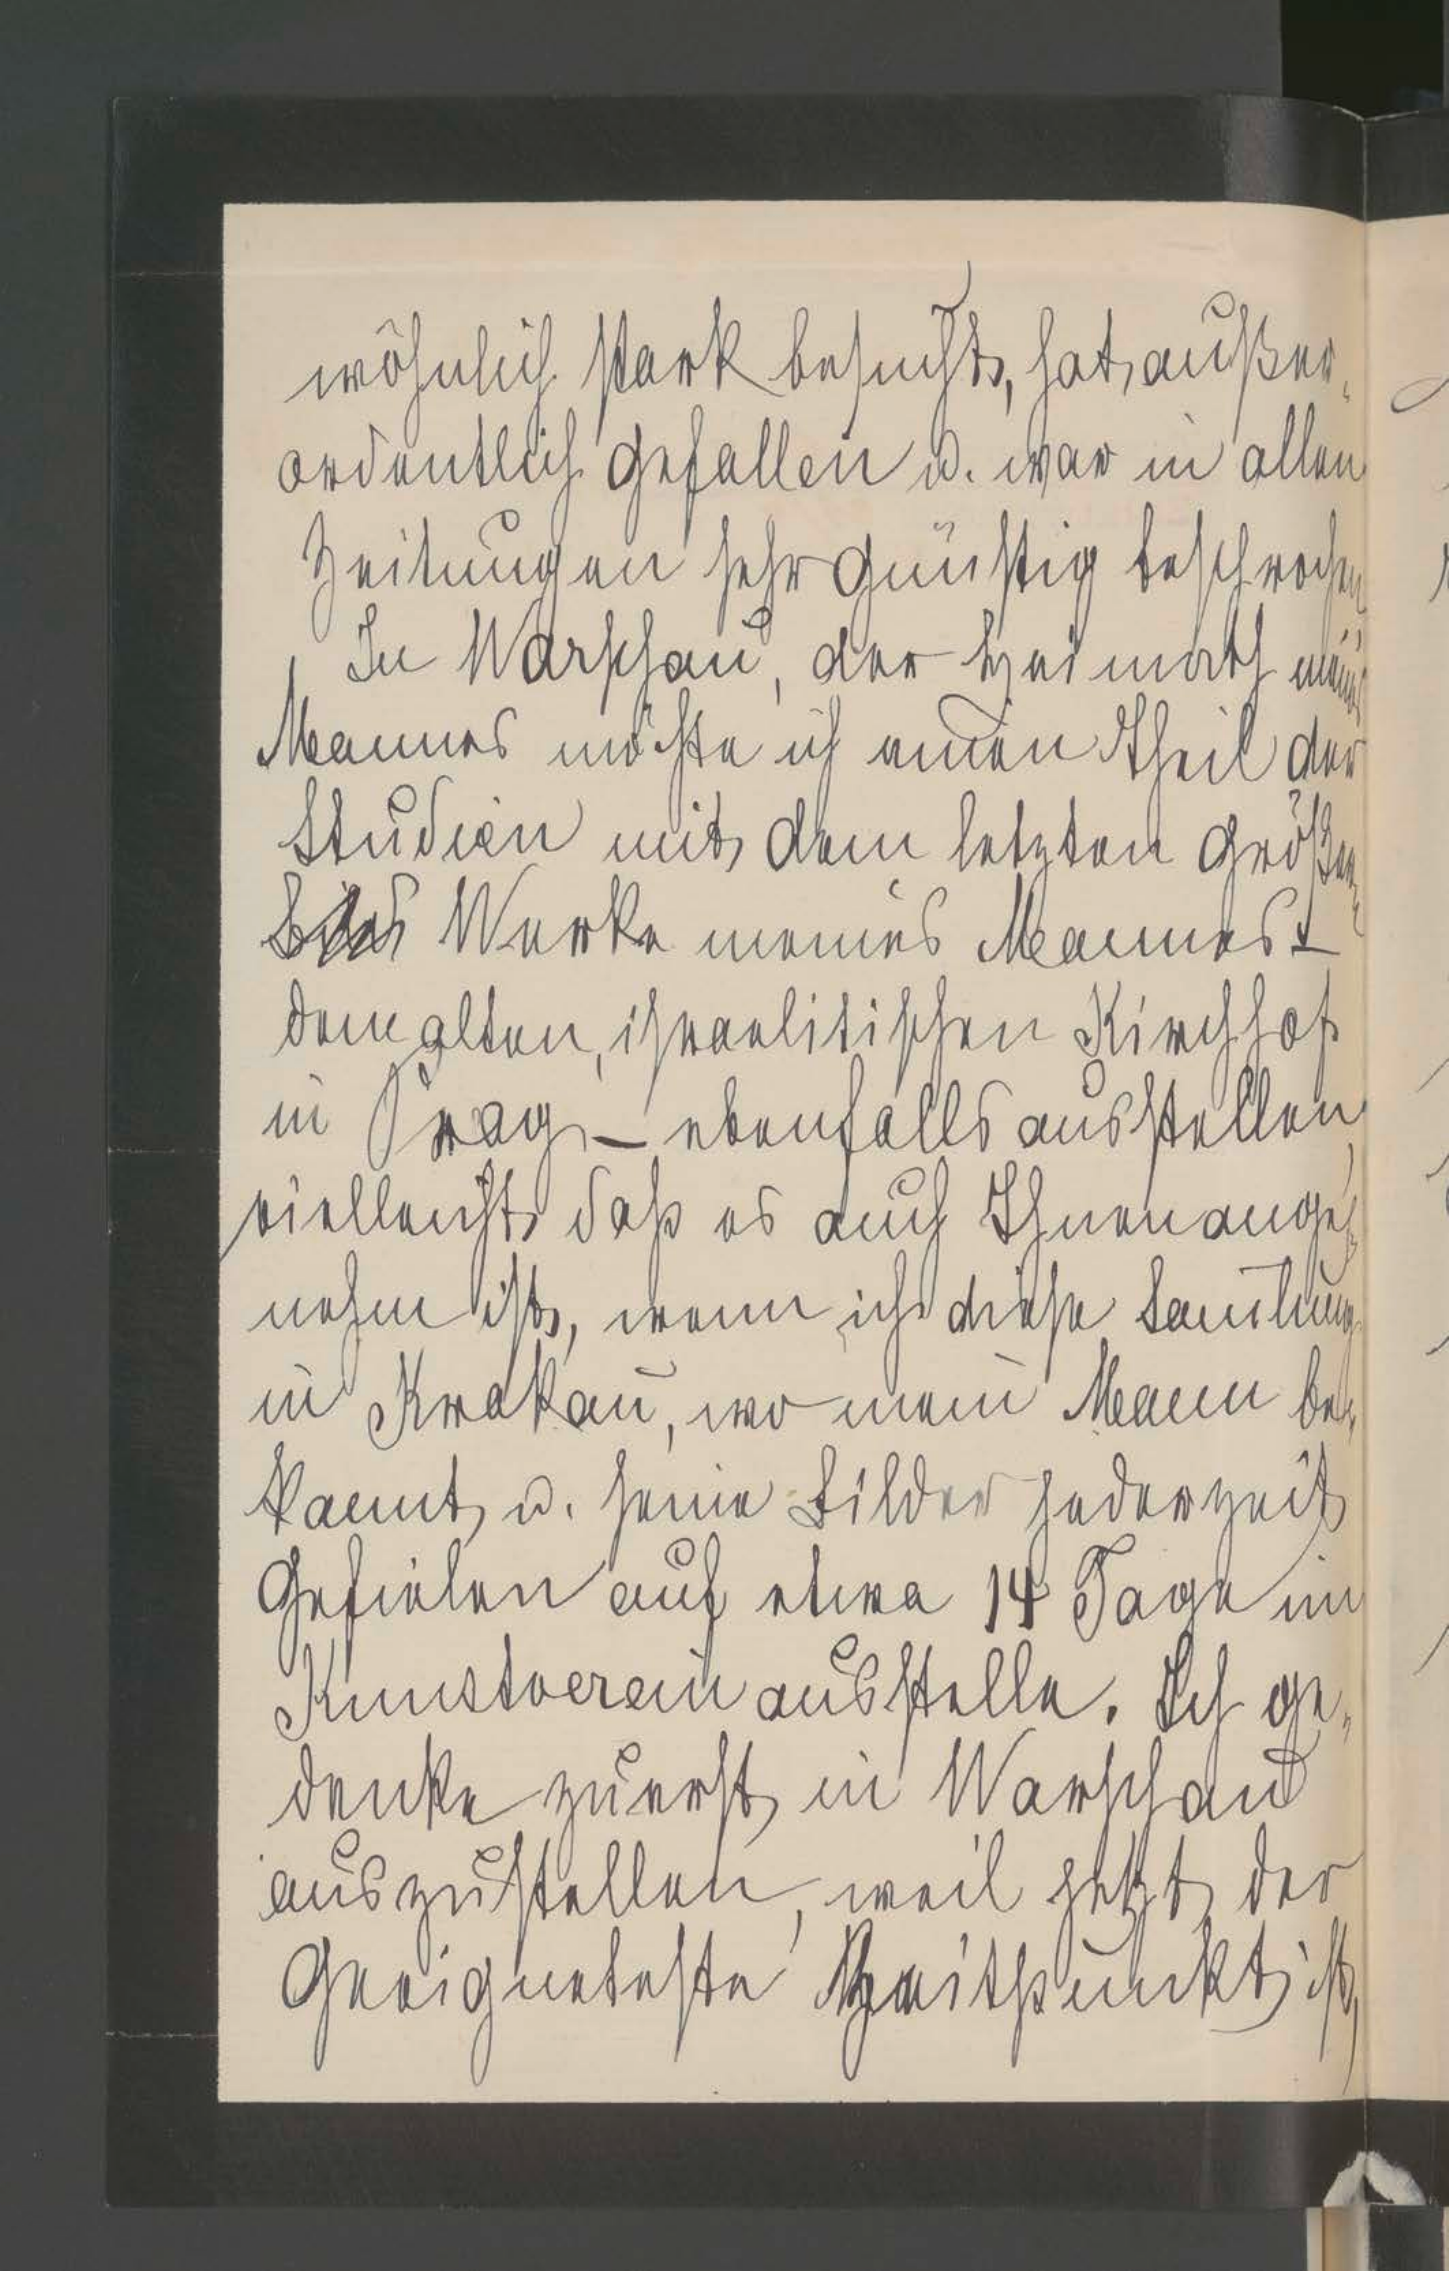 wöhnlich stark besucht, hat außer„
ordentlich gefallen u. war in allen
Zeitungen sehr günstig besprochen
In Warschau, der Heimath meines
Mannes möchte ich einen Theil der
Studien mit dem letzten größeren
Werke meines Mannes –
dem alten, israelitischen Kirchhof
in Prag – ebenfalls ausstellen,
vielleicht daß es auch Ihnen ange„
nehm ist, wenn ich diese Sam̄lung
in Krakau, wo mein Mann be„
kannt, u. seine Bilder jederzeit
gefielen auf etwa 14 Tage im
Kunstverein ausstelle. Ich ge„
denke zuerst in Warschau
auszustellen, weil jetzt der
geeigneteste Zeitpunkt ist,